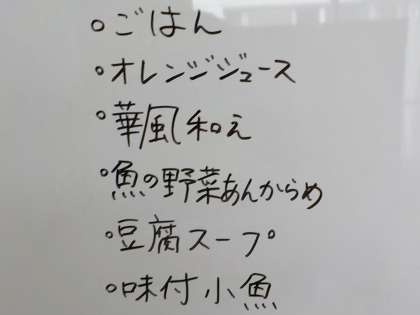 。ごはん
。オレンジジュース
。華風和え
。魚の野菜あんからめ
。豆腐スープ
。味付小魚